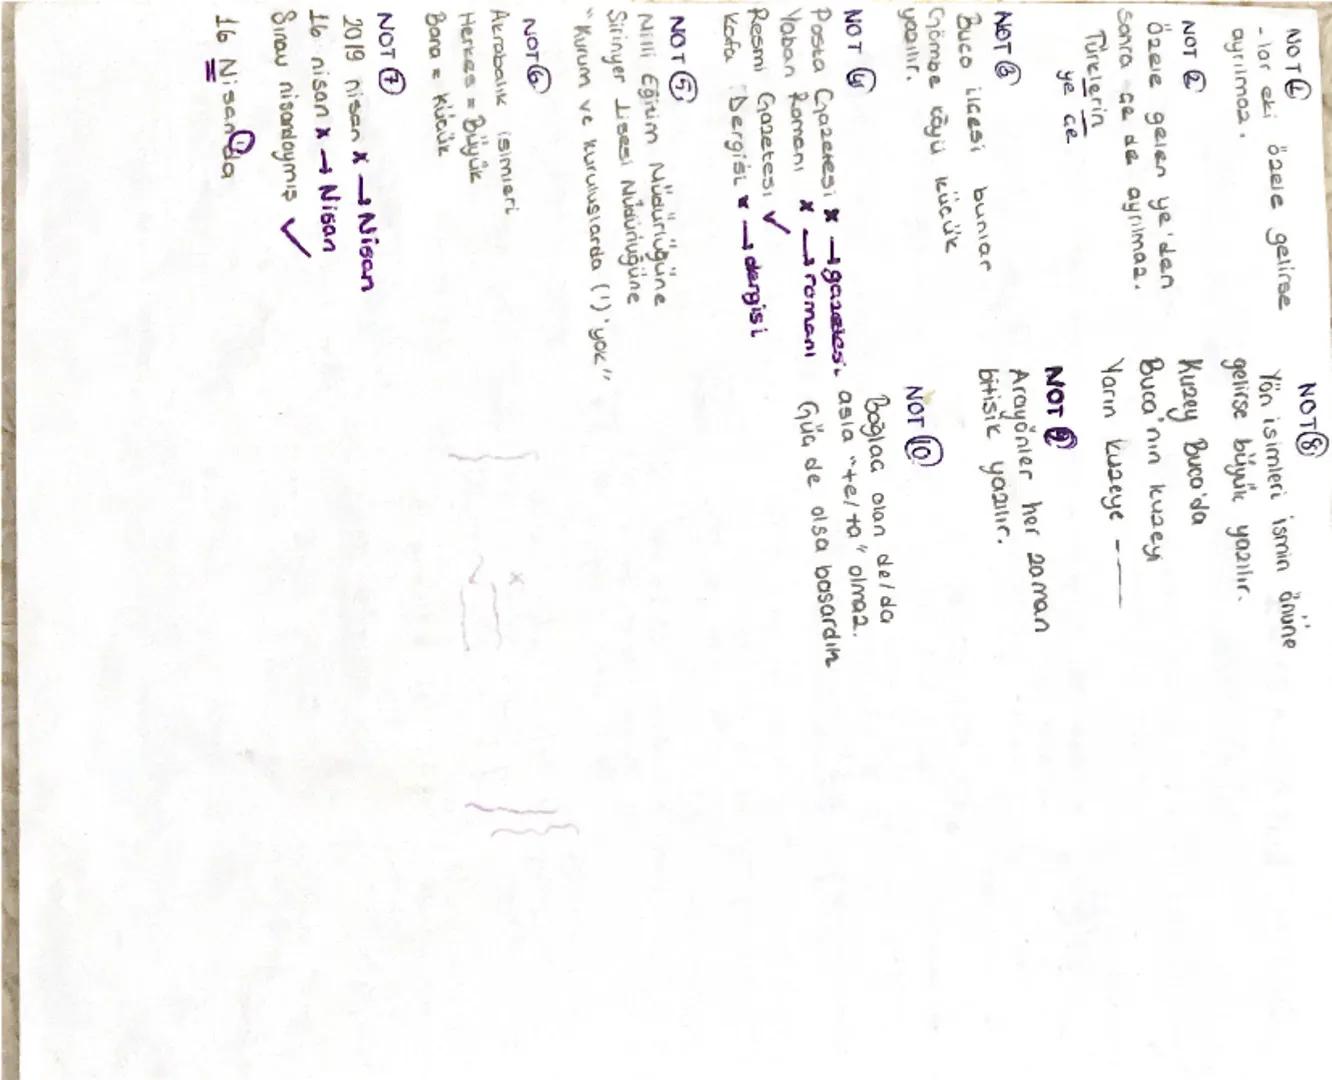 NOT 1
-lar eki özele gelirse
ayrılmaz.
NOT 2
Özele gelen ye'den
sonra ge de ayrılmaz.
Türelerin
ye çe
NOT 3
Buca ilçesi bunlar
Gömbe köyü küçük
yazılır.
NOT 4
Posta Gazetesi x → gazetesi
Yaban Romanı x → romanı
Resmi Gazetesi ✓
Kafa Dergisi x → dergisi
NOT 5
Milli Eğitim Müdürlüğüne
Şirinyer Lisesi Müdürlüğüne
"Kurum ve kuruluşlarda (') 'yok"
NOT 6
Akrabalık isimleri
Herkes = Büyük
Bana = Küçük
NOT 7
2019 nisan x → Nisan
16 nisan x → Nisan
Sınav nisandaymış ✓
16 Nisan'da
NOT 8
Yön isimleri ismin önüne
gelirse büyük yazılır.
Kuzey Buca'da
Buca'nın kuzeyi
Yarın kuzeye - ——
NOT 9
Arayönler her zaman
bitişik yazılır.
NOT 10
Bağlaç olan de/da
asla "te/ta" olmaz.
Güç de olsa başardık